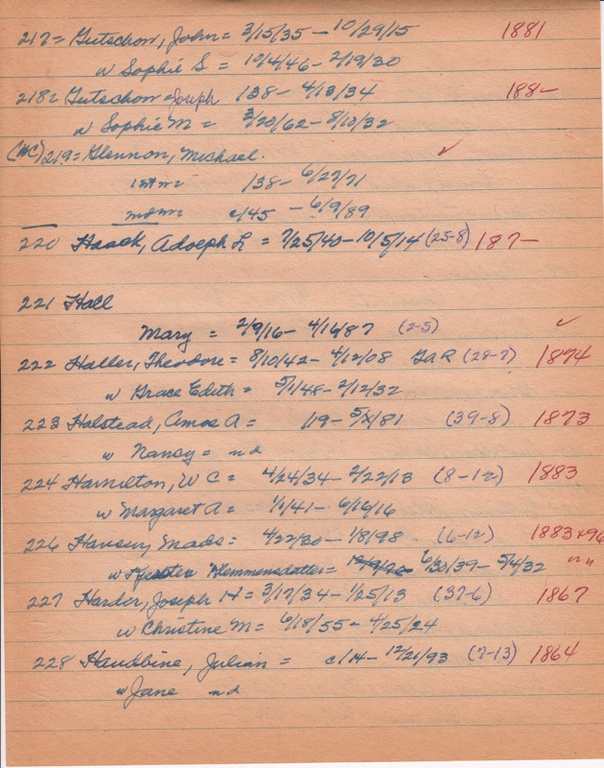 217= Gutschow, John = 3/15/35 - 10/29/15 1881
w Sophie S = 10/4/46 - 2/19/30
218= Gutschow = Joseph 138 - 4/13/34 188-
w Sophie M = 3/20/62 - 8/13/32
(HC) 219= Glennon, Michael. ✓
1st m = 138 - 6/27/71
2nd m = c/45 - 6/9/89
220 Haack, Adolph L = 7/25/40 - 10/5/14 (25-8) 187-
221 Hall
Mary = 2/9/16 - 4/16/87 (2-5) ✓
222 Haller, Theodore = 8/10/42 - 4/12/08 GAR (28-7) 1874
w Grace Edith = 5/1/48 - 2/12/32
223 Halstead, Amos A = /19 - 5/x/81 (39-8) 1873
w Nancy = nd
224 Hamilton, W C = 4/24/34 - 2/22/13 (8-12) 1883
w Margaret A = 1/1/41 - 6/16/16
226 Hansen, Mads = 4/22/30 - 1/8/98 (6-12) 1883 & 96
w Klemmensdatter = 6/30/39 - 5/4/32
227 Harder, Joseph H = 3/17/34 - 1/25/13 (37-6) 1867
w Christine M = 6/18/55 - 4/25/24
228 Haudbine, Julian = c/14 - 12/26/93 (7-13) 1864
w Jane nd